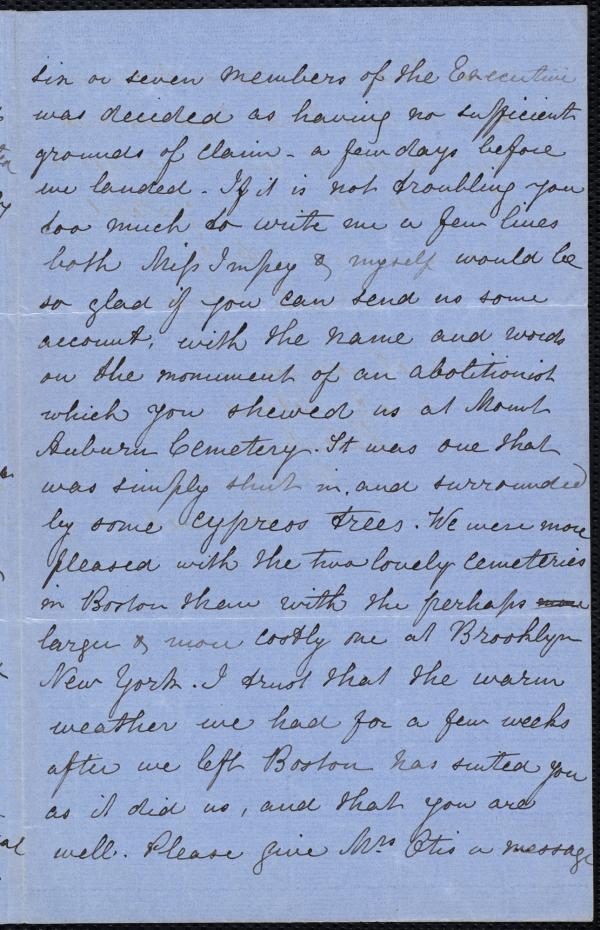 six or seven members of the Executive
was decided as having no sufficient
grounds of claim - a few days before
we landed - If it is not troubling you
too much to write me a few lines
both Miss Impey & myself would be
so glad if you can send us some
account, with the name and words
on the monument of an abolitionist
which you shewed us at Mount
Auburn Cemetery. It was one that
was simply shut in, and surrounded
by some cypress trees. We were more
pleased with the two lovely cemeteries
in Boston than with the perhaps more
larger & more costly one at Brooklyn
New York. I trust that the warm
weather we had for a few weeks
after we left Boston has suited you
as it did us, and that you are
well. Please give Mrs Otis a message